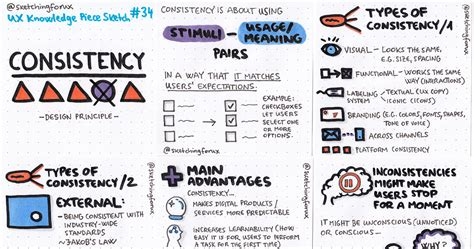 @sketchingforux
UX Knowledge Piece Sketch #34
CONSISTENCY
- DESIGN PRINCIPLE -
CONSISTENCY IS ABOUT USING
STIMULI - USAGE/
MEANING
PAIRS
IN A WAY THAT IT MATCHES
USERS' EXPECTATIONS.
EXAMPLE:
CHECKBOXES
LET USERS
SELECT ONE
OR MORE
OPTIONS.
@sketchingforux
@sketchingforux
TYPES OF
CONSISTENCY/1
VISUAL - LOOKS THE SAME,
E.G. SIZE, SPACING
FUNCTIONAL - WORKS THE SAME
WAY (INTERACTIONS)
LABELING SYSTEM
TEXTUAL (UX COPY)
ICONIC (ICONS)
BRANDING (E.G. COLORS, FONTS, SHAPES,
TONE OF VOICE)
ACROSS CHANNELS
PLATFORM CONSISTENCY
@sketchingforux
TYPES OF
CONSISTENCY/2
EXTERNAL:
- BEING CONSISTENT WITH
INDUSTRY-WIDE
STANDARDS
JAKOB'S LAW
@sketchingforux
MAIN
ADVANTAGES
CONSISTENCY...
MAKES DIGITAL PRODUCTS/
SERVICES MORE PREDICTABLE
INCREASES LEARNABILITY (HOW
EASY IT IS FOR USERS TO PERFORM
A TASK FOR THE FIRST TIME)
@sketchingforux
INCONSISTENCIES
MIGHT MAKE
USERS STOP
FOR A MOMENT
IT MIGHT BE UNCONSCIOUS (UNNOTICED)
OR CONSCIOUS...